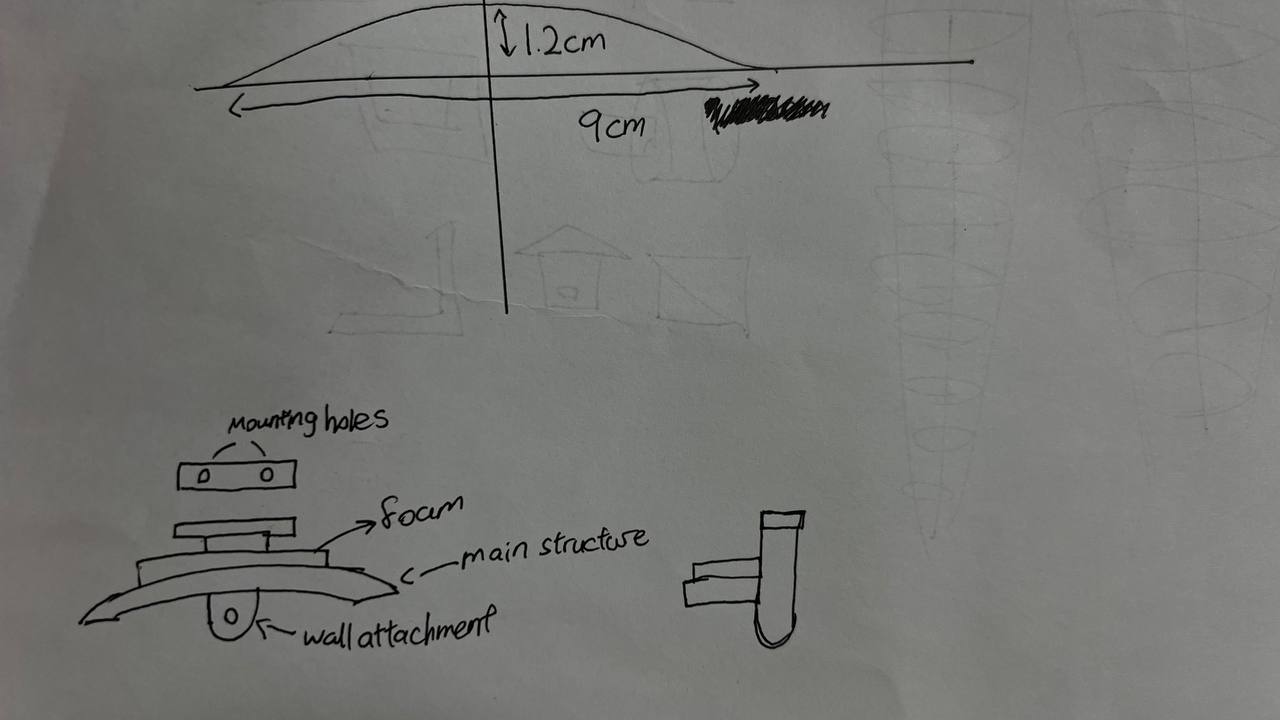 1.2cm
9cm
Mounting holes
foam
main structure
wall attachment